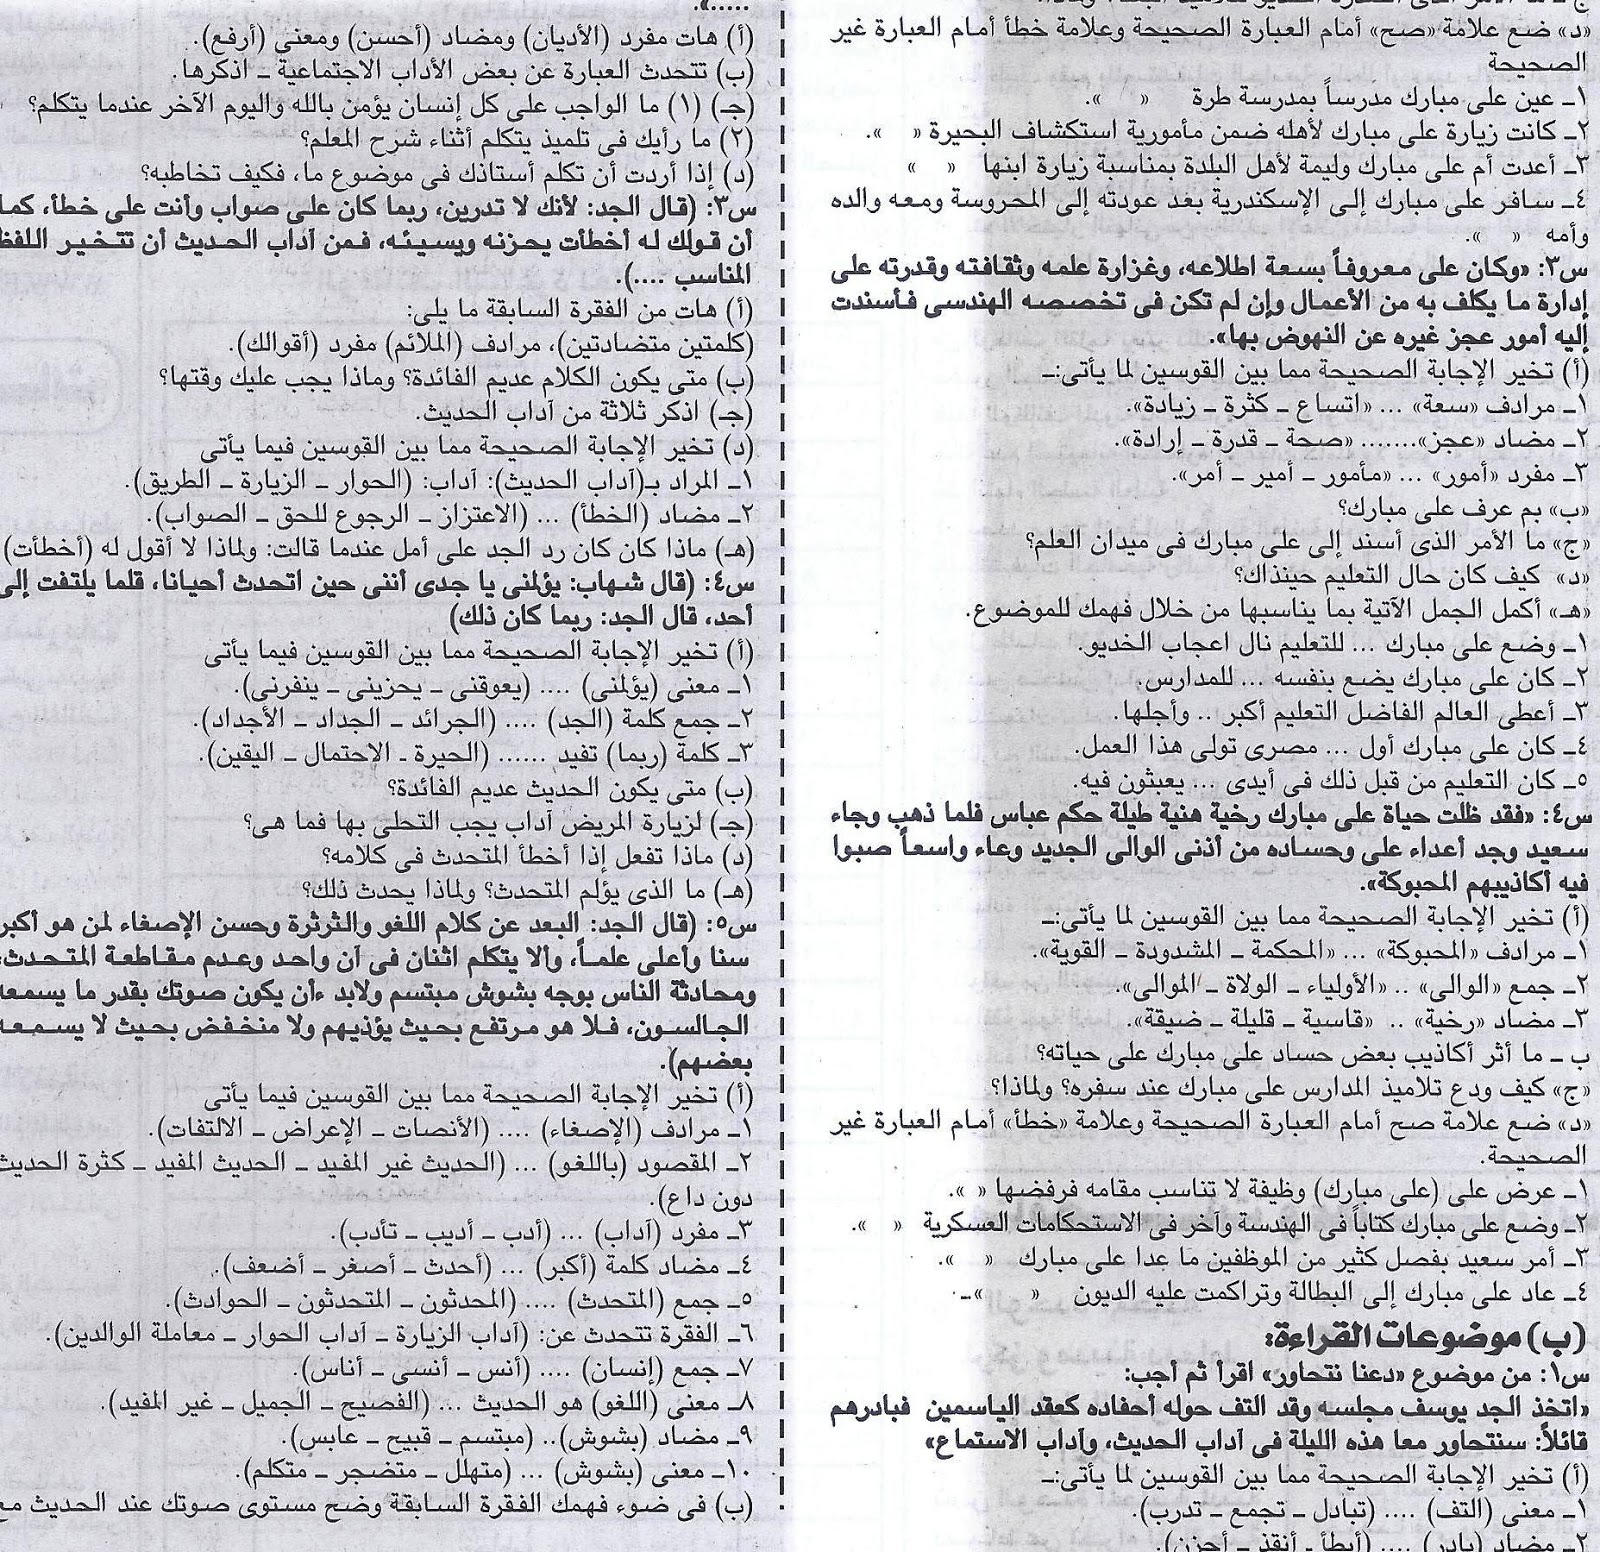 «د» ضع علامة «صح» أمام العبارة الصحيحة وعلامة خطأ أمام العبارة غير
الصحيحة
١ـ عين على مبارك مدرساً بمدرسة طرة « ».
٢ـ كانت زيارة على مبارك لأهله ضمن مأمورية استكشاف البحيرة « ».
٣ـ أعدت أم على مبارك وليمة لأهل البلدة بمناسبة زيارة ابنها « »
٤ـ سافر على مبارك إلى الإسكندرية بعد عودته إلى المحروسة ومعه والده
وأمه « ».
س٣: «وكان على معروفاً بسعة اطلاعه، وغزارة علمه وثقافته وقدرته على
إدارة ما يكلف به من الأعمال وإن لم تكن فى تخصصه الهندسى فأسندت
إليه أمور عجز غيره عن النهوض بها».
(أ) تخير الإجابة الصحيحة مما بين القوسين لما يأتى:ـ
١ـ مرادف «سعة» ... «اتساع ـ كثرة ـ زيادة».
٢ـ مضاد «عجز»....... «صحة ـ قدرة ـ إرادة».
٣ـ مفرد «أمور» ... «مأمور ـ أمير ـ أمر».
«ب» بم عرف على مبارك؟
«ج» ما الأمر الذى أسند إلى على مبارك فى ميدان العلم؟
«د» كيف كان حال التعليم حينذاك؟
«هـ» أكمل الجمل الآتية بما يناسبها من خلال فهمك للموضوع.
١ـ وضع على مبارك ... للتعليم نال اعجاب الخديو.
٢ـ كان على مبارك يضع بنفسه ... للمدارس.
٣ـ أعطى العالم الفاضل التعليم أكبر .. وأجلها.
٤ـ كان على مبارك أول ... مصرى تولى هذا العمل.
٥ـ كان التعليم من قبل ذلك فى أيدى ... يعبثون فيه.
س٤: «فقد ظلت حياة على مبارك رخية هنية طيلة حكم عباس فلما ذهب وجاء
سعيد وجد أعداء على وحساده من أذنى الوالى الجديد وعاء واسعاً صبوا
فيه أكاذيبهم المحبوكة».
(أ) تخير الإجابة الصحيحة مما بين القوسين لما يأتى:ـ
١ـ مرادف «المحبوكة» ... «المحكمة ـ المشدودة ـ القوية».
٢ـ جمع «الوالى» .. «الأولياء ـ الولاة ـ الموالى».
٣ـ مضاد «رخية» .. «قاسية ـ قليلة ـ ضيقة».
ب ـ ما أثر أكاذيب بعض حساد على مبارك على حياته؟
«ج» كيف ودع تلاميذ المدارس على مبارك عند سفره؟ ولماذا؟
«د» ضع علامة صح أمام العبارة الصحيحة وعلامة «خطأ» أمام العبارة غير
الصحيحة.
١ـ عرض على (على مبارك) وظيفة لا تناسب مقامه فرفضها « ».
٢ـ وضع على مبارك كتاباً فى الهندسة وآخر فى الاستحكامات العسكرية « ».
٣ـ أمر سعيد بفصل كثير من الموظفين ما عدا على مبارك « ».
٤ـ عاد على مبارك إلى البطالة وتراكمت عليه الديون « »ـ
(ب) موضوعات القراءة:
س١: من موضوع «دعنا نتحاور» اقرأ ثم أجب:
«اتخذ الجد يوسف مجلسه وقد التف حوله أحفاده كعقد الياسمين فبادرهم
قائلاً: سنتحاور معا هذه الليلة فى آداب الحديث، وآداب الاستماع»
(أ) تخير الإجابة الصحيحة مما بين القوسين لما يأتى:ـ
١ـ معنى (التف) .... (تبادل ـ تجمع ـ تدرب).
٢ـ مضاد (بادر) .... (أبطأ ـ أنقذ ـ أحزن).
.....».
(أ) هات مفرد (الأديان) ومضاد (أحسن) ومعنى (أرفع).
(ب) تتحدث العبارة عن بعض الأداب الاجتماعية ـ اذكرها.
(جـ) (١) ما الواجب على كل إنسان يؤمن بالله واليوم الآخر عندما يتكلم؟
(٢) ما رأيك فى تلميذ يتكلم أثناء شرح المعلم؟
(د) إذا أردت أن تكلم أستاذك فى موضوع ما، فكيف تخاطبه؟
س٣: (قال الجد: لأنك لا تدرين، ربما كان على صواب وأنت على خطأ، كما
أن قولك له أخطأت يحزنه ويسيئه، فمن آداب الحديث أن تتخير اللفظ
المناسب ....).
(أ) هات من الفقرة السابقة ما يلى:
(كلمتين متضادتين)، مرادف (الملائم) مفرد (أقوالك).
(ب) متى يكون الكلام عديم الفائدة؟ وماذا يجب عليك وقتها؟
(جـ) اذكر ثلاثة من آداب الحديث.
(د) تخير الإجابة الصحيحة مما بين القوسين فيما يأتى
١ـ المراد بـ(آداب الحديث): آداب: (الحوار ـ الزيارة ـ الطريق).
٢ـ مضاد (الخطأ) ... (الاعتزان ـ الرجوع للحق ـ الصواب).
(هـ) ماذا كان كان رد الجد على أمل عندما قالت: ولماذا لا أقول له (أخطأت)
س٤: (قال شهاب: يؤلمنى يا جدى أننى حين اتحدث أحيانا، قلما يلتفت إلى
أحد، قال الجد: ربما كان ذلك)
(أ) تخير الإجابة الصحيحة مما بين القوسين فيما يأتى
١ـ معنى (يؤلمنى) .... (يعوقنى ـ يحزينى ـ ينفرنى).
٢ـ جمع كلمة (الجد) .... (الجرائد ـ الجداد ـ الأجداد).
٣ـ كلمة (ربما) تفيد ...... (الحيرة ـ الاحتمال ـ اليقين).
(ب) متى يكون الحديث عديم الفائدة؟
(جـ) لزيارة المريض آداب يجب التحلى بها فما هى؟
(د) ماذا تفعل إذا أخطأ المتحدث فى كلامه؟
(هـ) ما الذى يؤلم المتحدث؟ ولماذا يحدث ذلك؟
س٥: (قال الجد: البعد عن كلام اللغو والثرثرة وحسن الإصغاء لمن هو أكبر
سنا وأعلى علماً، وألا يتكلم اثنان فى آن واحد وعدم مقاطعة المتحدث،
ومحادثة الناس بوجه بشوش مبتسم ولابد ءأن يكون صوتك بقدر ما يسمعه
الجالسون، فلا هو مرتفع بحيث يؤذيهم ولا منخفض بحيث لا يسمعه
بعضهم).
(أ) تخير الإجابة الصحيحة مما بين القوسين فيما يأتى
١ـ مرادف (الإصغاء) .... (الأنصات ـ الإعراض ـ الالتفات).
٢ـ المقصود (باللغو) ... (الحديث غير المفيد ـ الحديث المفيد ـ كثرة الحديث
دون داع).
٣ـ مفرد (آداب) ... (أدب ـ أديب ـ تأدب).
٤ـ مضاد كلمة (أكبر) ... (أحدث ـ أصغر ـ أضعف).
٥ـ جمع (المتحدث) .... (المحدثون ـ المتحدثون ـ الحوادث).
٦ـ الفقرة تتحدث عن: (آداب الزيارة ـ آداب الحوار ـ معاملة الوالدين).
٧ـ جمع (إنسان) .... (أنس ـ أنسى ـ أناس).
٨ـ معنى (اللغو) هو الحديث ... (الفصيح ـ الجميل ـ غير المفيد).
٩ـ مضاد (بشوش).. (مبتسم ـ قبيح ـ عابس).
١٠ـ معنى (بشوش) ... (متهلل ـ متضجر ـ متكلم).
(ب) فى ضوء فهمك الفقرة السابقة وضح مستوى صوتك عند الحديث مع